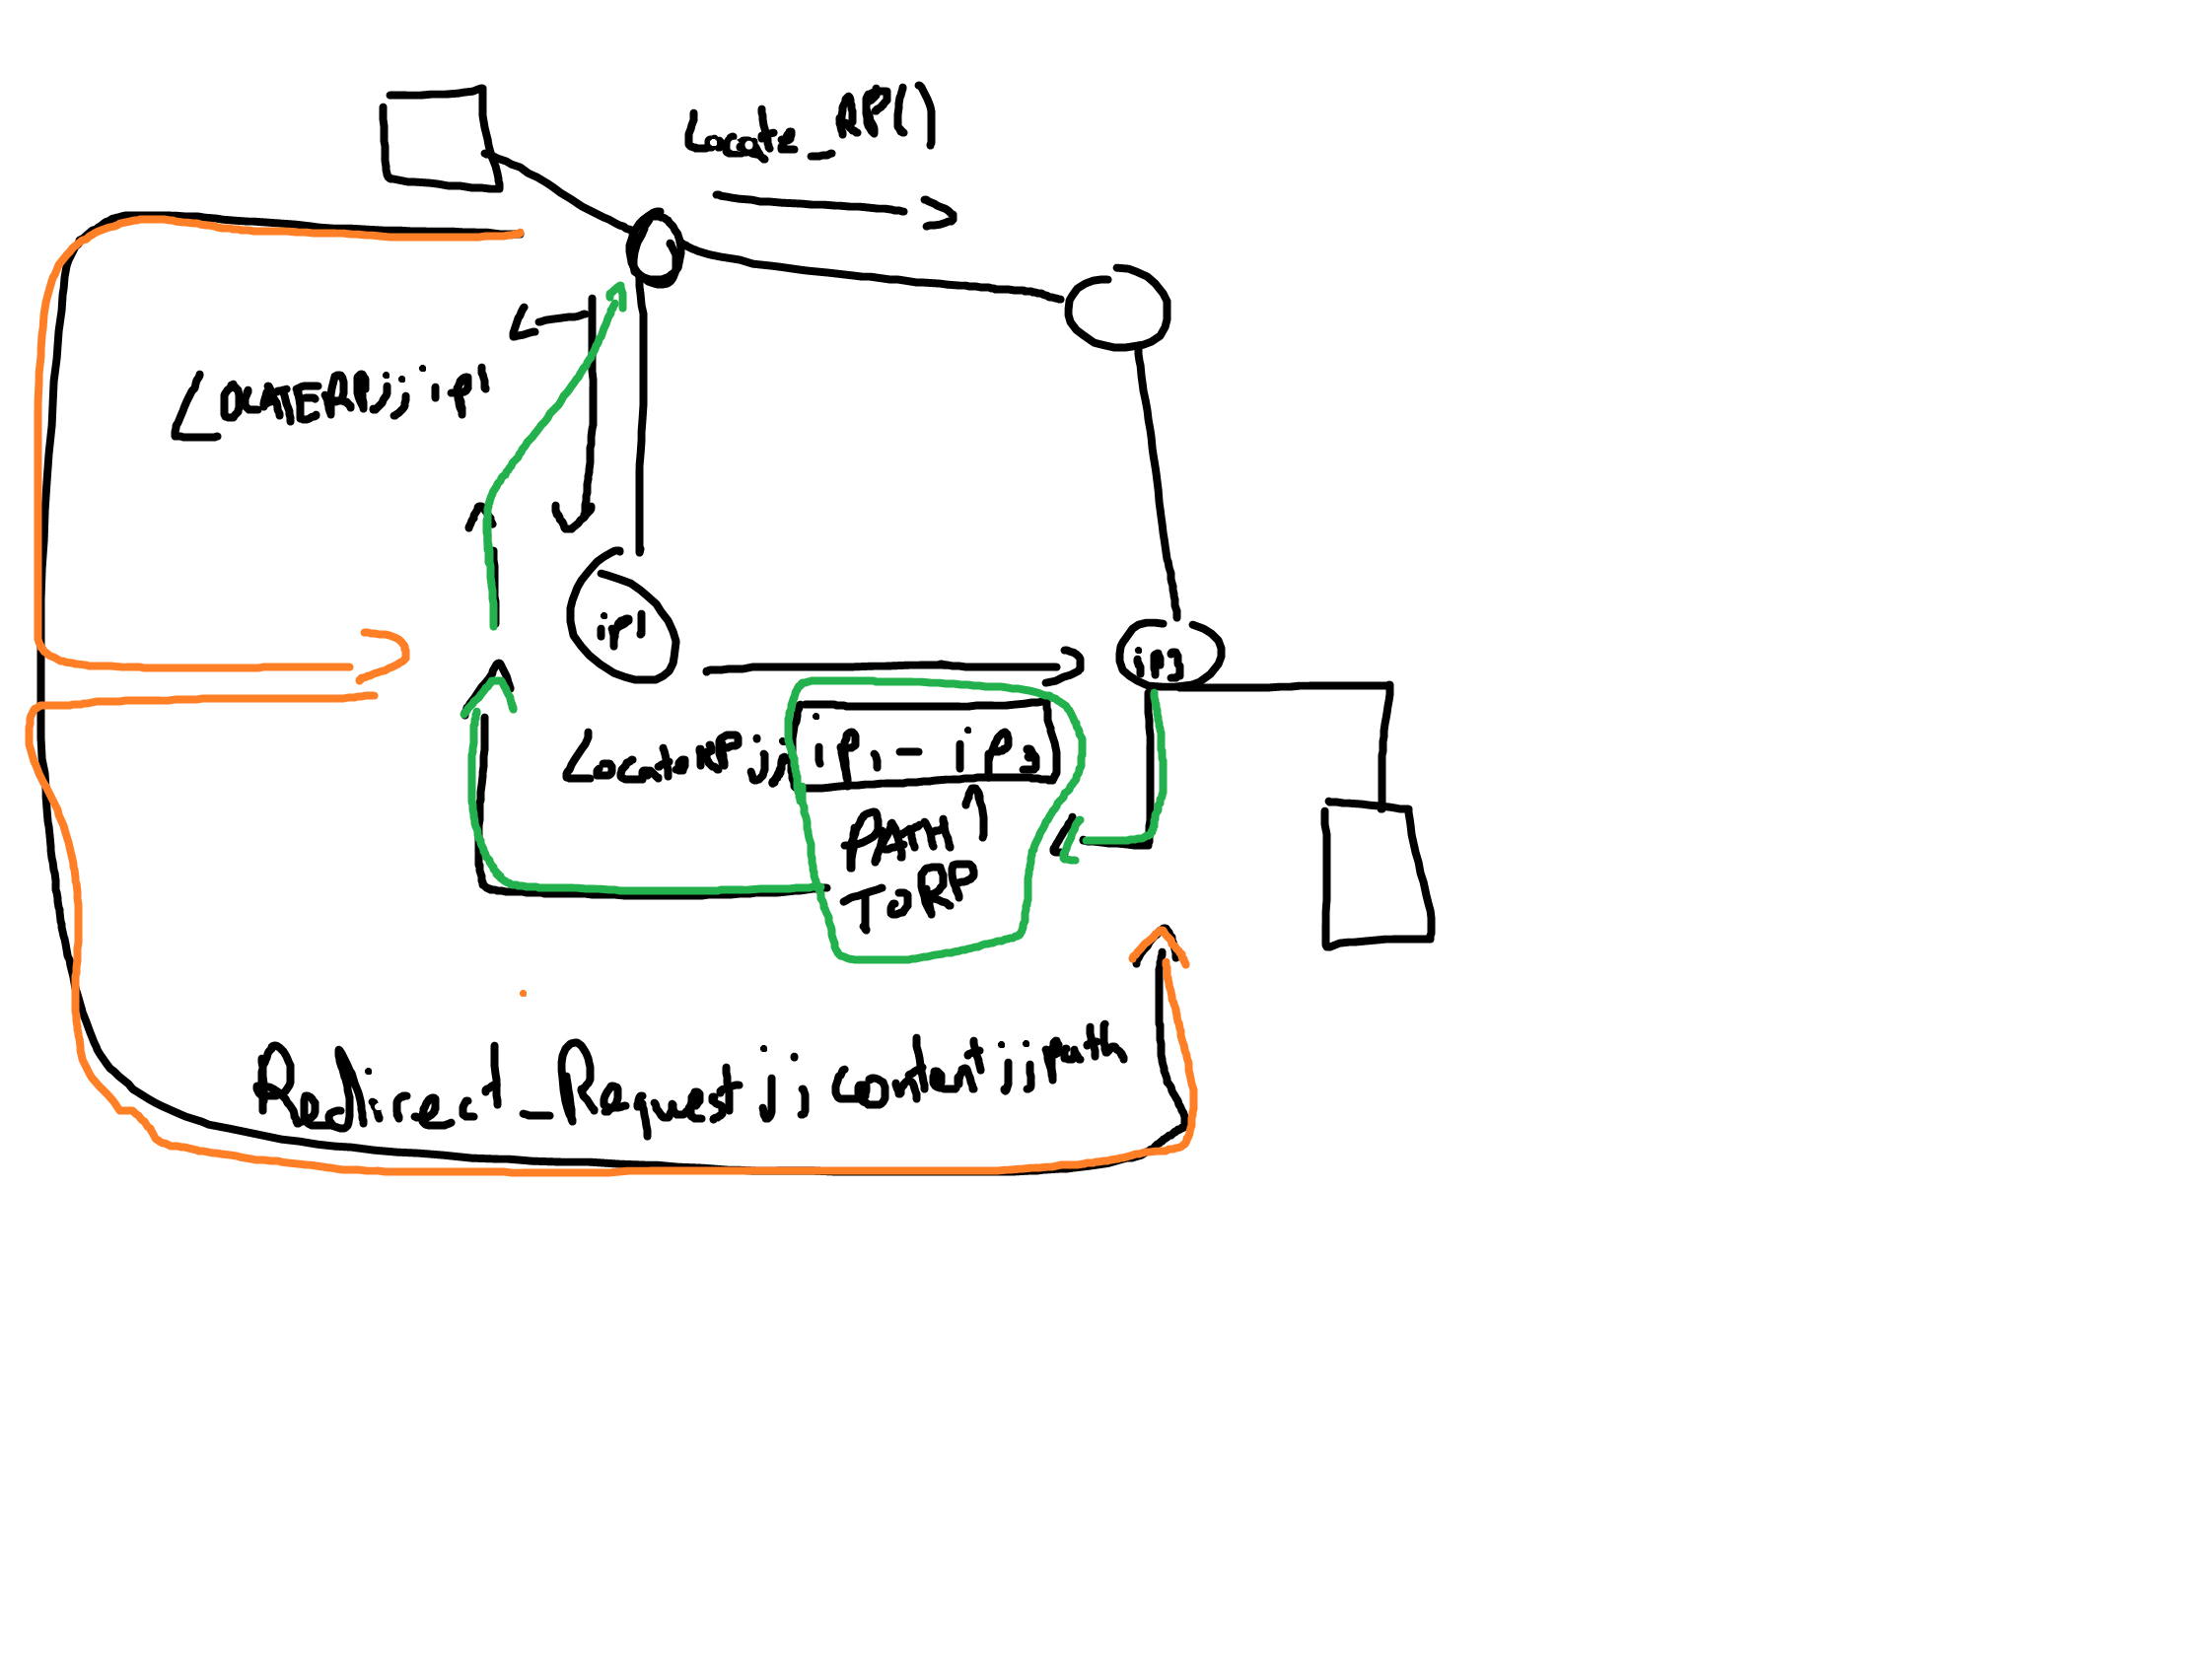 Locate_RP()
LOCATERP;;ip1
ip1
ip3
LocateRP;; ip1 - ip3
PATH
To RP
Redirect_Request;; content;;Path